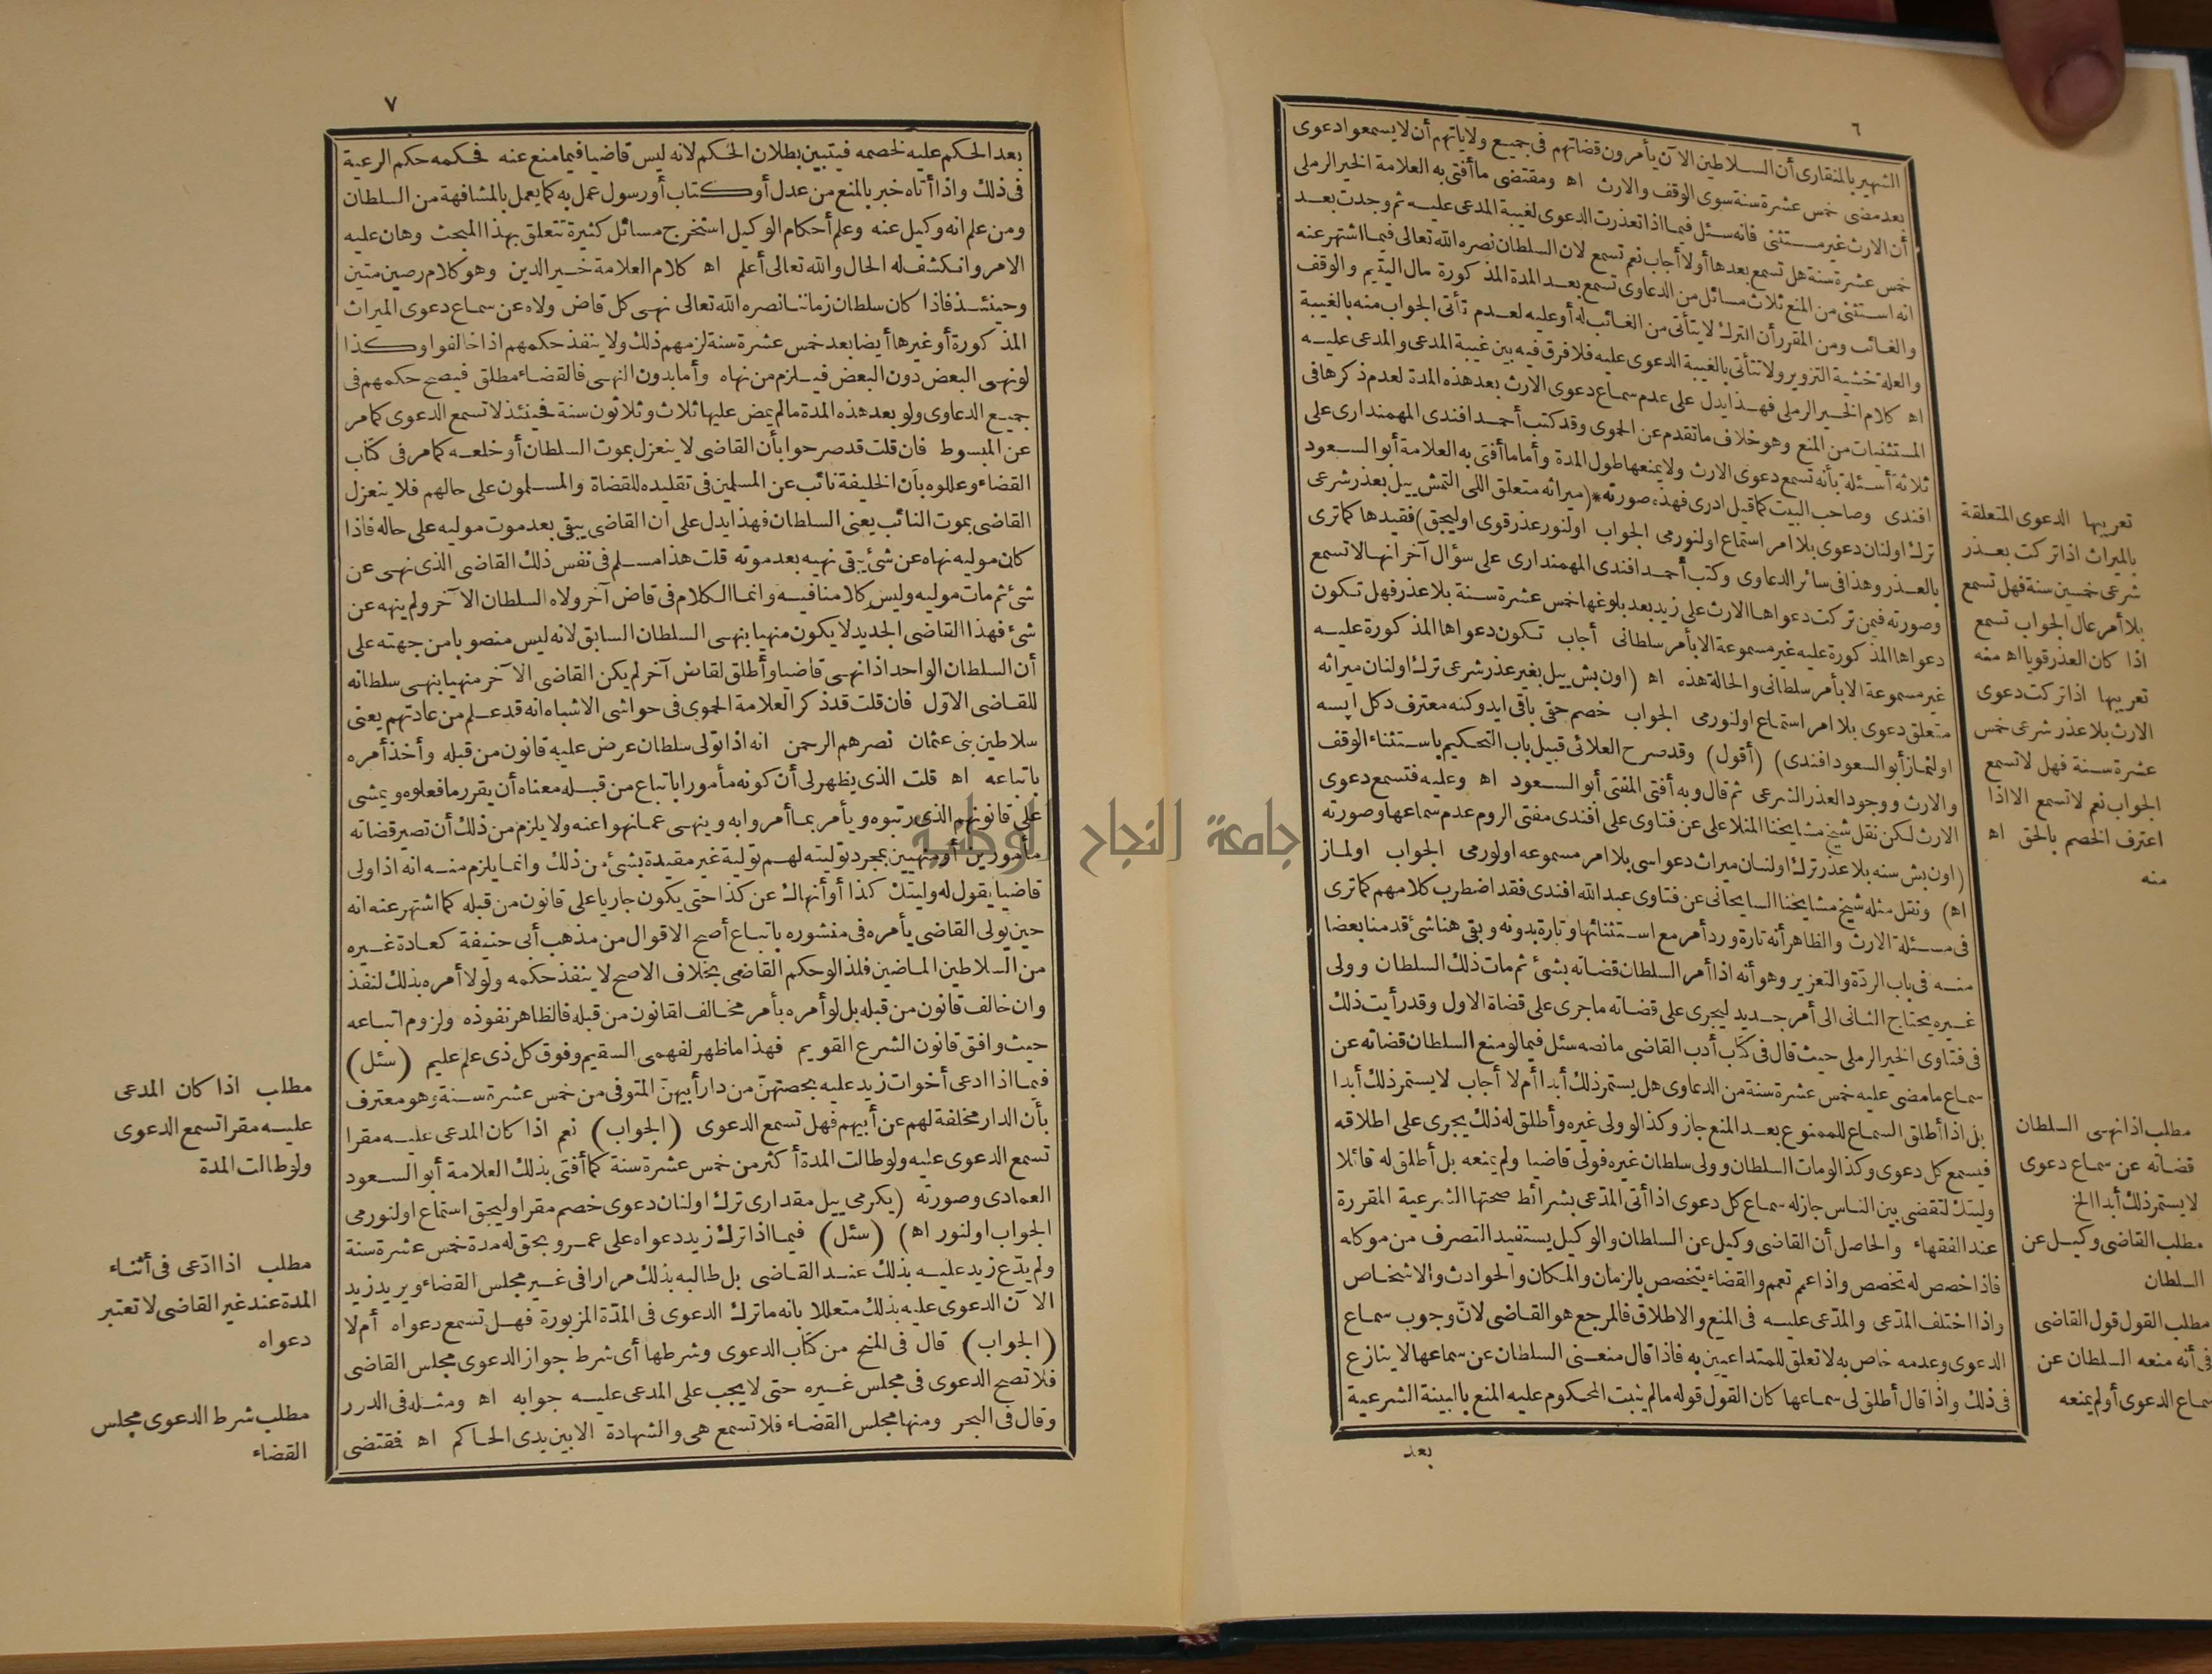 ٦
الشهير بالمنقارى أن السلاطين الآن يأمرون قضاتهم فى جميع ولاياتهم أن لا يسمعوا دعوى
بعد مضى خمس عشرة سنة سوى الوقف والارث اه ومقتضى ما أفتى به العلامة الخير الرملى
أن الارث غير مستثنى فانه سئل فيما اذا تعذرت الدعوى لغيبة المدعى عليه ثم وجدت بعد
خمس عشرة سنة هل تسمع بعدها أولا أجاب نعم تسمع لان السلطان نصره الله تعالى فيما اشتهر عنه
انه استثنى من المنع ثلاث مسائل من الدعاوى تسمع بعد المدة المذكورة مال اليتيم والوقف
والغائب ومن المقرر أن الترك لا يتأتى من الغائب له أو عليه لعدم تأتى الجواب منه بالغيبة
والعلة خشية التزوير ولا تتأتى بالغيبة الدعوى عليه فلا فرق فيه بين غيبة المدعى والمدعى عليه
اه كلام الخير الرملى فهذا يدل على عدم سماع دعوى الارث بعد هذه المدة لعدم ذكرها فى
المستثنيات من المنع وهو خلاف ما تقدم عن الحموى وقد كتب أحمد افندى المهمندارى على
ثلاثة أسئلة بأنه تسمع دعوى الارث ولا يمنعها طول المدة وأما ما أفتى به العلامة أبو السعود
افندى وصاحب البيت كما قيل ادرى فهذه صورته * (ميراثه متعلق اللى التمش ييل بعذر شرعى
ترك اولنان دعوى بلا امر استماع اولنورمى الجواب اولنور عذر قوى اوليجق) فقيدها كما ترى
بالعذر وهذا فى سائر الدعاوى وكتب أحمد افندى المهمندارى على سؤال آخر انها لا تسمع
وصورته فيمن تركت دعواها الارث على زيد بعد بلوغها خمس عشرة سنة بلا عذر فهل تكون
دعواها المذكورة عليه غير مسموعة الا بأمر سلطانى أجاب تكون دعواها المذكورة عليه
غير مسموعة الا بأمر سلطانى والحالة هذه اه (اون بش ييل بغير عذر شرعى ترك اولنان ميراثه
متعلق دعوى بلا امر استماع اولنورمى الجواب خصم حقى باقى ايدوكنه معترف دكل ايسه
اولنماز أبو السعود افندى) (أقول) وقد صرح العلائى قبيل باب التحكيم باستثناء الوقف
والارث ووجود العذر الشرعى ثم قال وبه أفتى المفتى أبو السعود اه وعليه فتسمع دعوى
الارث لكن نقل شيخ مشايخنا المنلا على عن فتاوى على افندى مفتى الروم عدم سماعها وصورته
(اون بش سنه بلا عذر ترك اولنان ميراث دعواسى بلا امر مسموعه اولورمى الجواب اولماز
اه) ونقل مثله شيخ مشايخنا السايحانى عن فتاوى عبد الله افندى فقد اضطرب كلامهم كما ترى
فى مسئلة الارث والظاهر أنه تارة ورد أمر مع استثنائها وتارة بدونه وبقى هنا شئ قد منا بعضا
منه فى باب الردة والتعزير وهو أنه اذا أمر السلطان قضاته بشئ ثم مات ذلك السلطان وولى
غيره يحتاج الثانى الى أمر جديد ليجرى على قضاته ما جرى على قضاة الاول وقد رأيت ذلك
فى فتاوى الخير الرملى حيث قال فى كتاب أدب القاضى ما نصه سئل فيما لو منع السلطان قضاته عن
سماع ما مضى عليه خمس عشرة سنة من الدعاوى هل يستمر ذلك أبدا أم لا أجاب لا يستمر ذلك أبدا
بل اذا أطلق السماع للممنوع بعد المنع جاز وكذا لو ولى غيره وأطلق له ذلك يجرى على اطلاقه
فيسمع كل دعوى وكذا لو مات السلطان وولى سلطان غيره فولى قاضيا ولم يمنعه بل أطلق له قائلا
وليتك لتقضى بين الناس جاز له سماع كل دعوى اذا أتى المدعى بشرائط صحتها الشرعية المقررة
عند الفقهاء والحاصل أن القاضى وكيل عن السلطان والوكيل يستفيد التصرف من موكله
فاذا خصص له تخصص واذا عمم تعمم والقضاء يتخصص بالزمان والمكان والحوادث والاشخاص
واذا اختلف المدعى والمدعى عليه فى المنع والاطلاق فالمرجع هو القاضى لانّ وجوب سماع
الدعوى وعدمه خاص به لا تعلق للمتداعيين به فاذا قال منعنى السلطان عن سماعها لا ينازع
فى ذلك واذا قال أطلق لى سماعها كان القول قوله ما لم يثبت المحكوم عليه المنع بالبينة الشرعية
بعد
تعريبها الدعوى المتعلقة
بالميراث اذا تركت بعذر
شرعى خمسين سنة فهل تسمع
بلا أمر عال الجواب تسمع
اذا كان العذر قويا اه منه
تعريبها اذا تركت دعوى
الارث بلا عذر شرعى خمس
عشرة سنة فهل لا تسمع
الجواب نعم لا تسمع الا اذا
اعترف الخصم بالحق اه
منه
مطلب اذا نهى السلطان
قضاته عن سماع دعوى
لا يستمر ذلك أبدا الخ
مطلب القاضى وكيل عن
السلطان
مطلب القول قول القاضى
فى أنه منعه السلطان عن
سماع الدعوى أو لم يمنعه
٧
بعد الحكم عليه لخصمه فيتبين بطلان الحكم لانه ليس قاضيا فيما منع عنه فحكمه حكم الرعية
فى ذلك واذا أتاه خبر بالمنع من عدل أو كتاب أو رسول عمل به كما يعمل بالمشافهة من السلطان
ومن علم انه وكيل عنه وعلم أحكام الوكيل استخرج مسائل كثيرة تتعلق بهذا المبحث وهان عليه
الامر وانكشف له الحال والله تعالى أعلم اه كلام العلامة خير الدين وهو كلام رصين متين
وحينئذ فاذا كان سلطان زماننا نصره الله تعالى نهى كل قاض ولاه عن سماع دعوى الميراث
المذكورة أو غيرها أيضا بعد خمس عشرة سنة لزمهم ذلك ولا ينفذ حكمهم اذا خالفوا وكذا
لو نهى البعض دون البعض فيلزم من نهاه وأما بدون النهى فالقضاء مطلق فيصح حكمهم فى
جميع الدعاوى ولو بعد هذه المدة ما لم يمض عليها ثلاث وثلاثون سنة فحينئذ لا تسمع الدعوى كما مر
عن المبسوط فان قلت قد صرحوا بأن القاضى لا ينعزل بموت السلطان أو خلعه كما مر فى كتاب
القضاء وعللوه بأن الخليفة نائب عن المسلمين فى تقليده للقضاة والمسلمون على حالهم فلا ينعزل
القاضى بموت النائب يعنى السلطان فهذا يدل على أن القاضى يبقى بعد موت موليه على حاله فاذا
كان موليه نهاه عن شئ يبقى نهيه بعد موته قلت هذا مسلم فى نفس ذلك القاضى الذى نهى عن
شئ ثم مات موليه وليس كلامنا فيه وانما الكلام فى قاض آخر ولاه السلطان الآخر ولم ينهه عن
شئ فهذا القاضى الجديد لا يكون منهيا بنهى السلطان السابق لانه ليس منصوبا من جهته على
أن السلطان الواحد اذا نهى قاضيا وأطلق لقاض آخر لم يكن القاضى الآخر منهيا بنهى سلطانه
للقاضى الاوّل فان قلت قد ذكر العلامة الحموى فى حواشى الاشباه انه قد علم من عادتهم يعنى
سلاطين بنى عثمان نصرهم الرحمن انه اذا تولى سلطان عرض عليه قانون من قبله وأخذ أمره
باتباعه اه قلت الذى يظهر لى أن كونه مأمورا باتباع من قبله معناه أن يقرر ما فعلوه ويمشى
على قانونهم الذى رتبوه ويأمر بما أمروا به وينهى عما نهوا عنه ولا يلزم من ذلك أن تصير قضاته
مأمورين أو منهيين بمجرد توليته لهم تولية غير مقيدة بشئ من ذلك وانما يلزم منه انه اذا ولى
قاضيا يقول له وليتك كذا أو أنهاك عن كذا حتى يكون جاريا على قانون من قبله كما اشتهر عنه انه
حين يولى القاضى يأمره فى منشوره باتباع أصح الاقوال من مذهب أبى حنيفة كعادة غيره
من السلاطين الماضين فلذا لو حكم القاضى بخلاف الاصح لا ينفذ حكمه ولولا أمره بذلك لنفذ
وان خالف قانون من قبله بل لو أمره بأمر مخالف لقانون من قبله فالظاهر نفوذه ولزوم اتباعه
حيث وافق قانون الشرع القويم فهذا ما ظهر لفهمى السقيم وفوق كل ذى علم عليم (سئل)
فيما اذا ادعى أخوات زيد عليه بحصتهنّ من دار أبيهنّ المتوفى من خمس عشرة سنة وهو معترف
بأن الدار مخلفة لهم عن أبيهم فهل تسمع الدعوى (الجواب) نعم اذا كان المدعى عليه مقرا
تسمع الدعوى عليه ولو طالت المدة أكثر من خمس عشرة سنة كما أفتى بذلك العلامة أبو السعود
العمادى وصورته (يكرمى ييل مقدارى ترك اولنان دعوى خصم مقر اوليجق استماع اولنورمى
الجواب اولنور اه) (سئل) فيما اذا ترك زيد دعواه على عمرو بحق له مدة خمس عشرة سنة
ولم يدّع زيد عليه بذلك عند القاضى بل طالبه بذلك مرارا فى غير مجلس القضاء ويريد زيد
الآن الدعوى عليه بذلك متعللا بانه ما ترك الدعوى فى المدّة المزبورة فهل تسمع دعواه أم لا
(الجواب) قال فى المنح من كتاب الدعوى وشرطها أى شرط جواز الدعوى مجلس القاضى
فلا تصح الدعوى فى مجلس غيره حتى لا يجب على المدعى عليه جوابه اه ومثله فى الدرر
وقال فى البحر ومنها مجلس القضاء فلا تسمع هى والشهادة الا بين يدى الحاكم اه فمقتضى
مطلب اذا كان المدعى
عليه مقرا تسمع الدعوى
ولو طالت المدة
مطلب اذا ادّعى فى أثناء
المدة عند غير القاضى لا تعتبر
دعواه
مطلب شرط الدعوى مجلس
القضاء
جامعة النجاح الوطنية